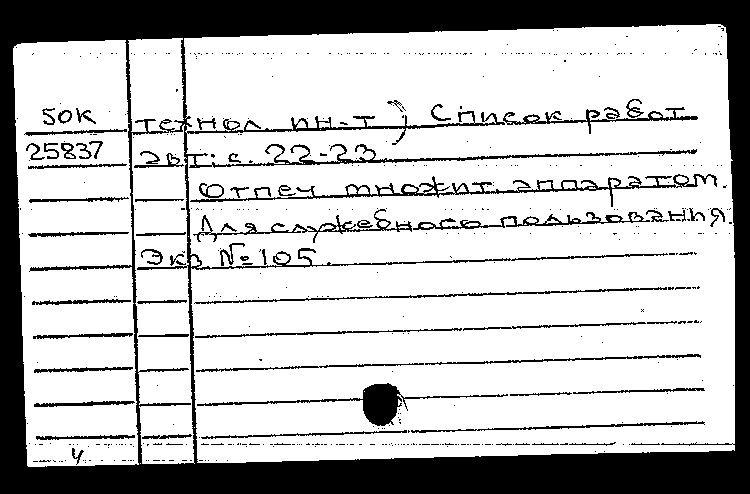 50К технол. ин-т) Список работ
25837 авт: с. 22-23
Отпеч. множит. аппаратом.
Для служебного пользования.
Экз № 105.
4